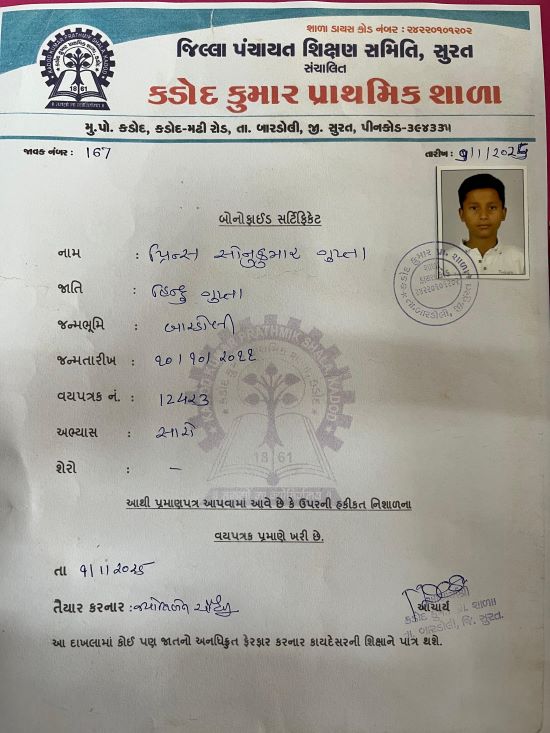 શાળા ડાયસ કોડ નંબર : ૨૪૨૨૦૧૦૧૨૦૨
જિલ્લા પંચાયત શિક્ષણ સમિતિ, સુરત
સંચાલિત
કડોદ કુમાર પ્રાથમિક શાળા
1861
મુ.પો. કડોદ, કડોદ-મઢી રોડ, તા. બારડોલી, જી. સુરત, પીનકોડ-૩૯૪૩૩૫
જાવક નંબર : 167
તારીખ : ૧/1/2025
બોનોફાઈડ સર્ટિફિકેટ
નામ : પ્રિન્સ સોનુકુમાર ગુપ્તા
જાતિ : હિન્દુ ગુપ્તા
જન્મભૂમિ : બારડોલી
જન્મતારીખ : ૧૦/૧૦/૨૦૧૧
વયપત્રક નં. : 12423
અભ્યાસ : સારો
શેરો : –
1861
આથી પ્રમાણપત્ર આપવામાં આવે છે કે ઉપરની હકીકત નિશાળના
વયપત્રક પ્રમાણે ખરી છે.
તા ૧/1/2025
તૈયાર કરનાર :
આચાર્ય
કડોદ કુમાર પ્રા. શાળા
તા. બારડોલી, જિ. સુરત.
આ દાખલામાં કોઈ પણ જાતનો અનધિકૃત ફેરફાર કરનાર કાયદેસરની શિક્ષાને પાત્ર થશે.